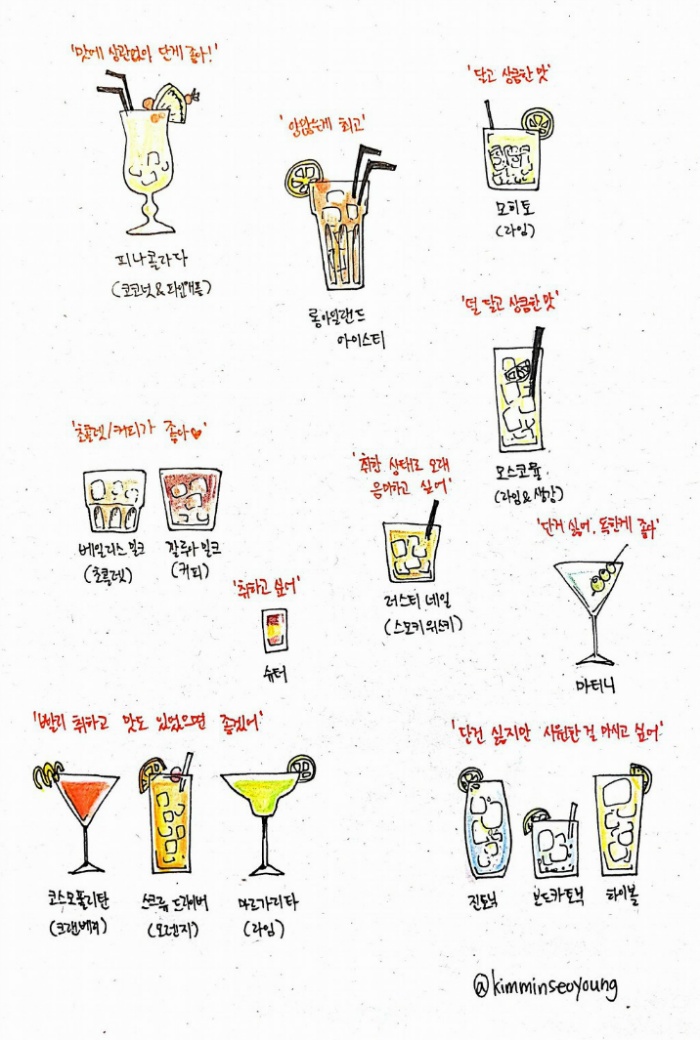 '맛에 상관없이 단게 좋아!'
피나콜라다
(코코넛&파인애플)
'양많은게 최고'
롱아일랜드
아이스티
'달고 상큼한 맛'
모히토
(라임)
'덜 달고 상큼한 맛'
모스코뮬
(라임&생강)
'초콜렛/커피가 좋아♥'
베일리스 밀크
(초콜렛)
깔루아 밀크
(커피)
'취한 상태로 오래
음미하고 싶어'
러스티 네일
(스모키 위스키)
'단거 싫어, 독한게 좋아'
마티니
'취하고 싶어'
슈터
'빨리 취하고 맛도 있었으면 좋겠어'
코스모폴리탄
(크랜베리)
스크류 드라이버
(오렌지)
마르가리타
(라임)
'단건 싫지만 시원한 걸 마시고 싶어'
진토닉
보드카토닉
하이볼
@kimminseoyoung